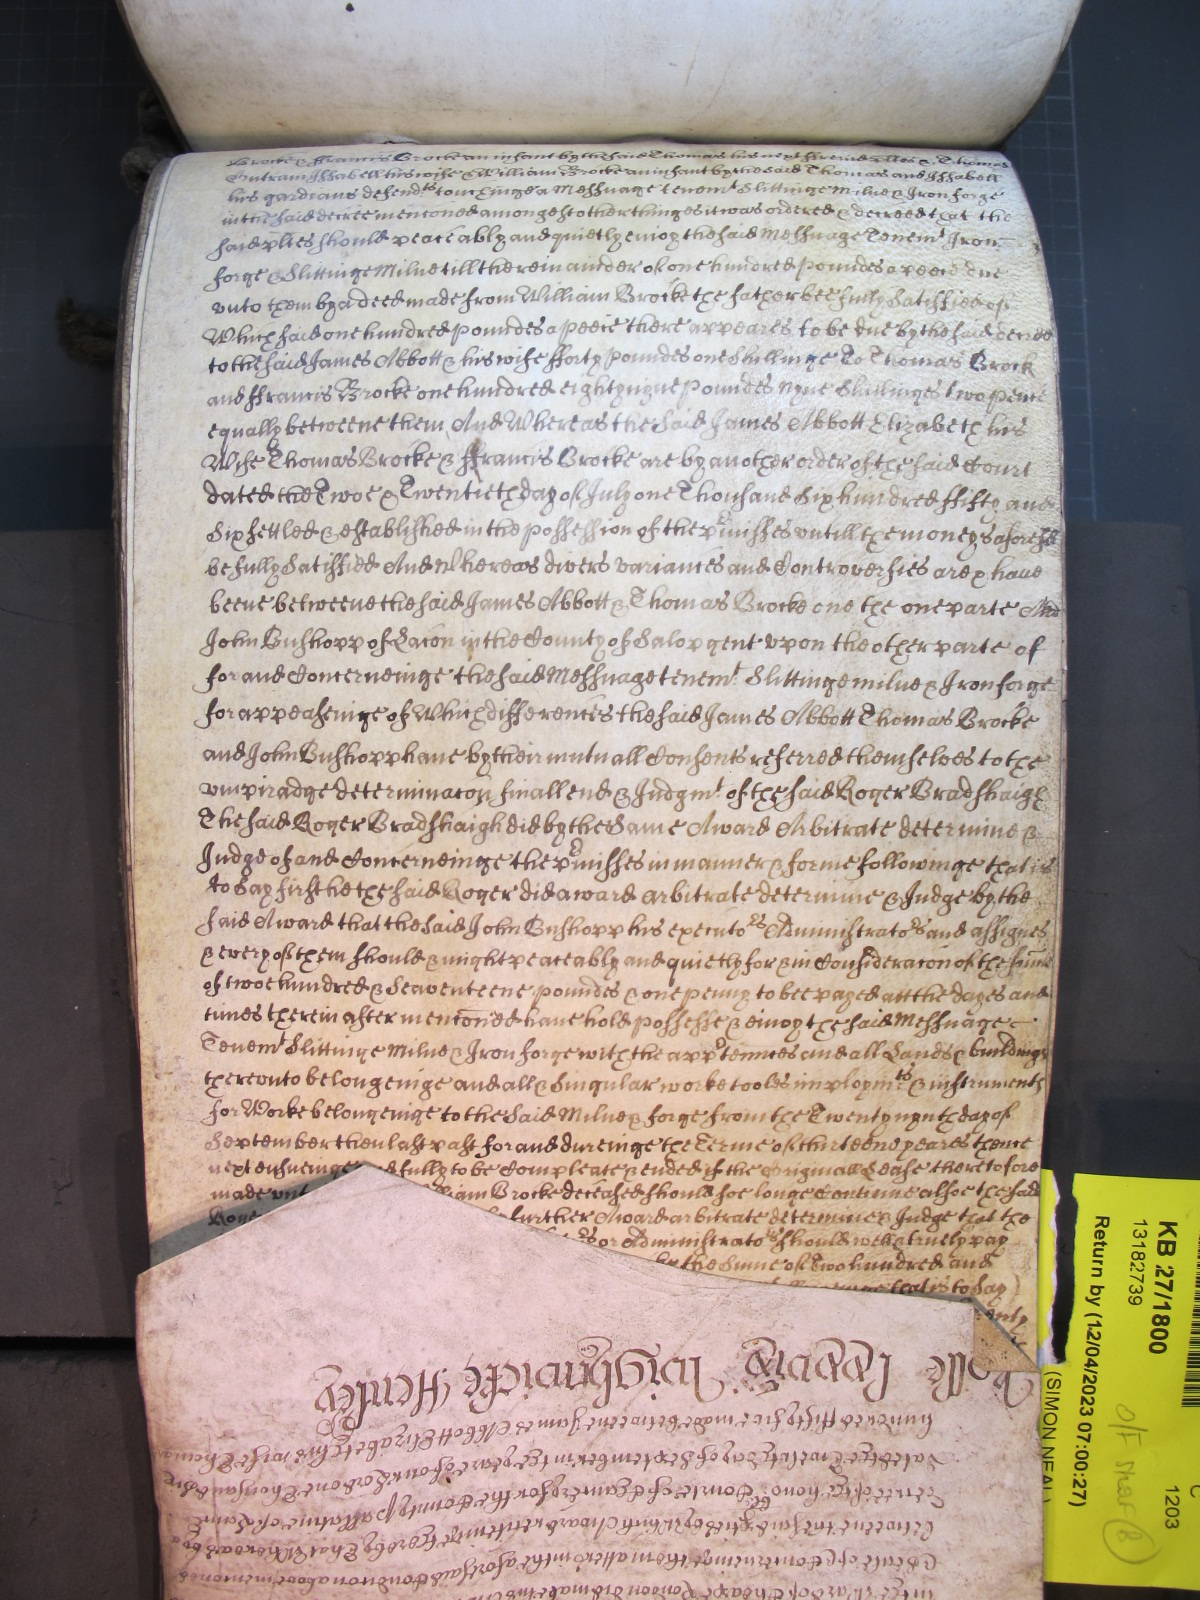 Brocke & ffrancis Brocke an infant by the said Thomas his next ffreind Alles & Thomas
Outram Issabell his wife & William Brocke an infant by the said Thomas and Issabell
his gardians defend.ts touchinge a Messuage tenem.t Slittinge Milne & Iron forge
in the said decree mentoned amongest other things it was ordered & decreed that the
said p'ties should peaceably and quietly enioy the said Messuage Tenem.t Iron
forge & Slittinge Milne till the remainder of one hundred poundes a peece due
vnto them by a deed made from William Brocke the father bee fully Satisfied of
Which said one hundred poundes a peece there appeares to be due by the said decree
to the said James Abbott & his wife fforty poundes one Shillinge To Thomas Brock
and ffrancis Brocke one hundred eighty nyne poundes nyne Shillinges two pence
equally betweene them And Whereas the Said James Abbott Elizabeth his
Wife Thomas Brocke & ffrancis Brocke are by another order of the said Court
dated the Twoe & Twentieth day of July one Thousand Six hundred ffifty and
Six setled & established in the possession of the p'misses vntill the moneys aforesd
be fully Satisfied And Whereas divers variances and Controversies are & haue
beene betweene the said James Abbott & Thomas Brocke one the one parte And
John Bushopp of Lacon in the County of Salop gent vpon the other parte of
for and Concerneinge the said Messuage tenem.t Slittinge milne & Iron forge
for appeaseinge of Which differences the said James Abbott Thomas Brocke
and John Bushopp haue by their mutuall Consents referred themselves to the
vmpiradge determinacon finall end & Judgm.t of the said Roger Bradshaigh
The said Roger Bradshaigh did by the Same Award Arbitrate determine &
Judge of and Concerneinge the p'misses in manner & forme followinge that is
to Say first he the said Roger did award arbitrate determine & Judge by the
said Award that the said John Bushopp his executo.rs Administrato.rs and assignes
& every of them should & might peaceably and quietly for & in Consideracon of the sume
of twoe hundred & Seaventeene poundes & one penny to bee payed att the dayes and
times therein after mentoned haue hold possesse & enioy the said Messuage
Tenem.t Slittinge Milne & Iron forge with the app'tennces and all Lands & buildings
therevnto belongeinge and all & Singular worke tooles imploym.ts & instruments
for Worke belongeinge to the Said Milne & forge from the Twenty nynth day of
September then last past for and dureinge the Terme of thirteene yeares thence
next ensueinge fully to be Compleate & ended if the Originall Lease theretofore
made vnt William Brocke deceased should soe longe Continue alsoe the said
Roger further Award arbitrate determine & Judge that the
or Administrato.rs should well & truely pay
the Sume of Two hundred and
that is to Say
only
Lowe Wightwicke Henley
hundred ffifty five made betweene James Abbott Elizabeth his wife Thomas
dated the Twelveth day of September in the yeare of our Lord one Thousand Six
decree of the hono.ble Courte of Chancery for the County Pallatine of Lanc
betweene the said p'ties by Which Award reciteinge thereby That Whereas by a
Debate of & Concerneinge the matters in the aforesaid Condicon above mentoned
in the Ward of Cheape London did make his
KB 27/1800
13182739
Return by (12/04/2023 07:00:27)
(SIMON NEAL)
C
1203